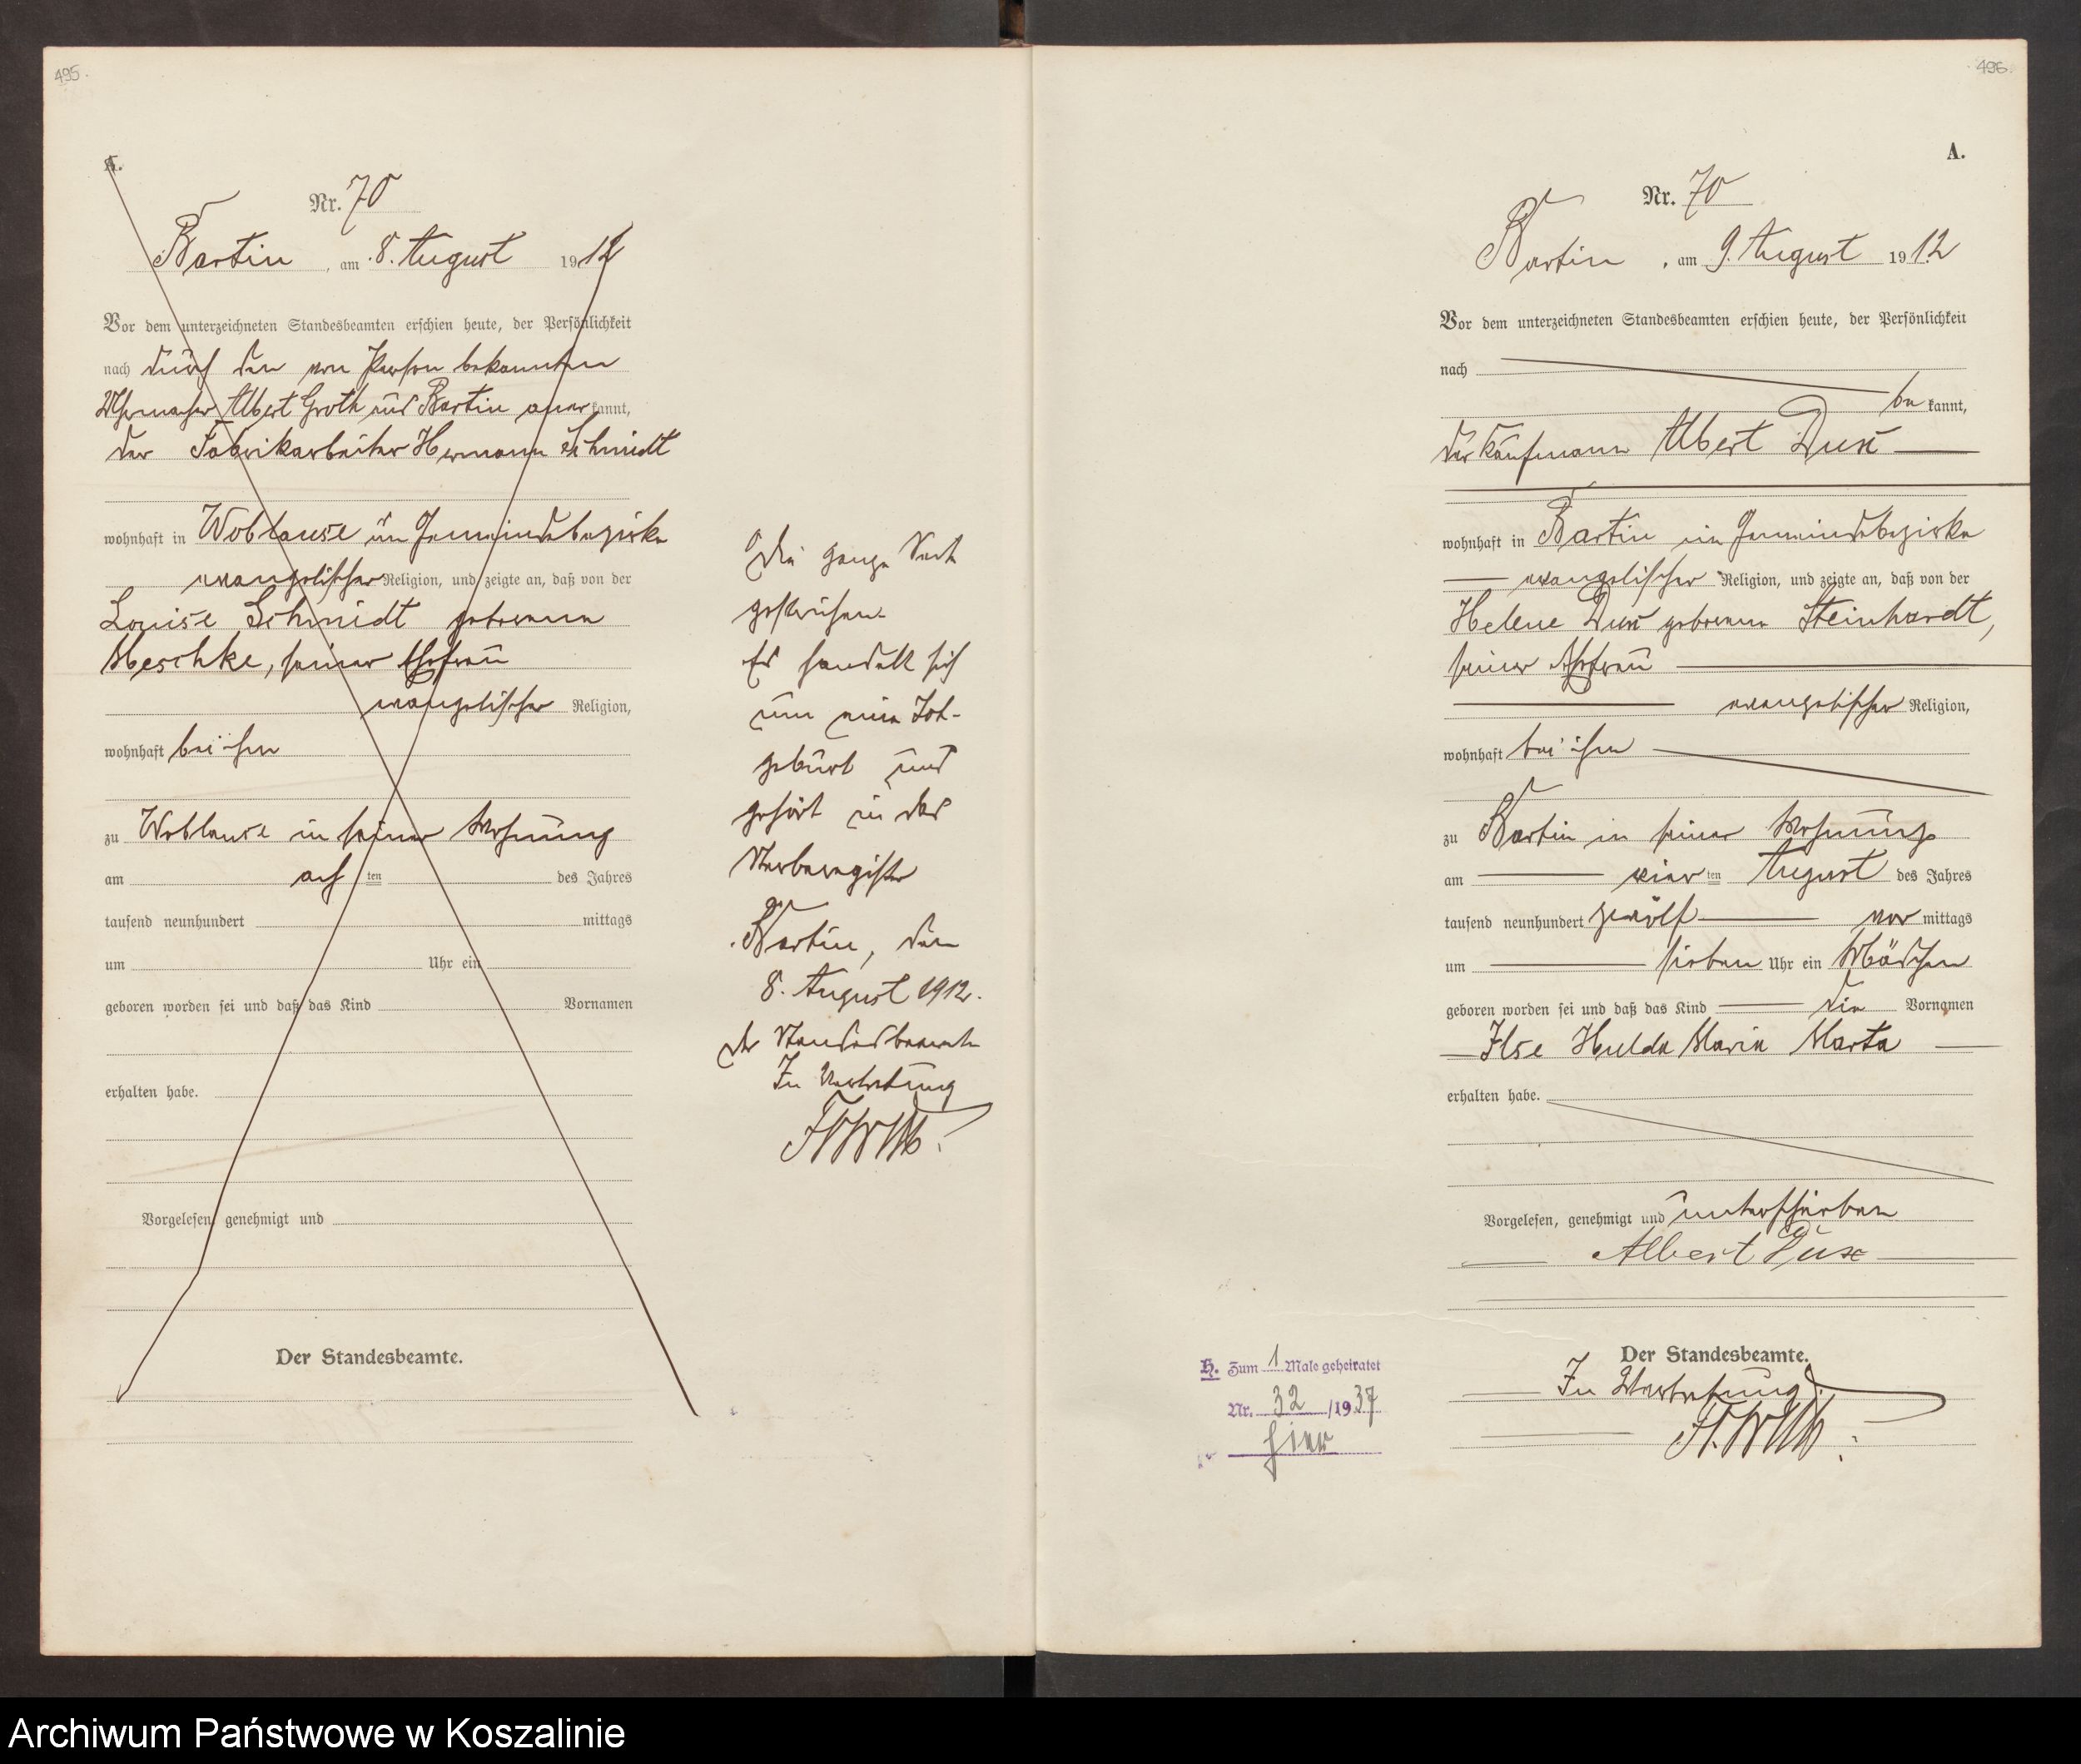 495.
A.
Nr. 70
Bartin, am 8. August 1912
Vor dem unterzeichneten Standesbeamten erschien heute, der Persönlichkeit
nach durch den von Person bekannten
Albert Groth aus Bartin anerkannt,
der Fabrikarbeiter Hermann Schmidt
wohnhaft in Woblanse im Gemeindebezirke
evangelischer Religion, und zeigte an, daß von der
Louise Schmidt geborenen
Meschke, seiner Ehefrau
evangelischer Religion,
wohnhaft bei ihm
zu Woblanse in seiner Wohnung
am ach ten des Jahres
tausend neunhundert mittags
um Uhr ein
geboren worden sei und daß das Kind Vornamen
erhalten habe.
Vorgelesen, genehmigt und
Der Standesbeamte.
Die ganze Seite
gestrichen.
Es handelt sich
um eine Tot-
geburt und
gehört in das
Sterberegister
Bartin, den
8. August 1912.
Der Standesbeamte
In Vertretung
496.
A.
Nr. 70
Bartin, am 9. August 1912
Vor dem unterzeichneten Standesbeamten erschien heute, der Persönlichkeit
nach
bekannt,
der Kaufmann Albert Dux
wohnhaft in Bartin im Gemeindebezirke
evangelischer Religion, und zeigte an, daß von der
Helene Dux geborenen Steinhardt,
seiner Ehefrau
evangelischer Religion,
wohnhaft bei ihm
zu Bartin in seiner Wohnung
am vierten August des Jahres
tausend neunhundert zwölf vormittags
um sieben Uhr ein Mädchen
geboren worden sei und daß das Kind die Vornamen
Ilse Hulda Maria Marta
erhalten habe.
Vorgelesen, genehmigt und unterschrieben
Albert Dux
Der Standesbeamte.
In Vertretung
H. Zum 1 Male geheiratet
Nr. 32/1937
hier
Archiwum Państwowe w Koszalinie